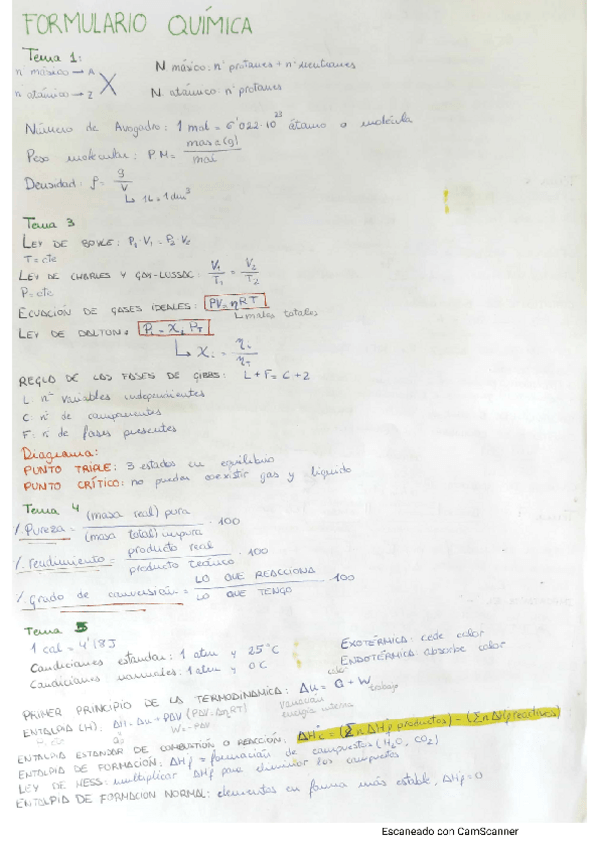 FORMULARIO QUÍMICA
Tema 1:
nº másico → A
nº atómico → Z
X
N másico: nº protones + nº neutrones
N. atómico: nº protones
Número de Avogadro: 1 mol = 6'022·10²³ átomo o molécula
Peso molecular: P.M = masa (g) / mol
Densidad: ρ = g / V
↳ 1L = 1dm³
Tema 3
LEY DE BOYLE: P₁·V₁ = P₂·V₂
T = cte
LEY DE CHARLES Y GAY-LUSSAC: V₁/T₁ = V₂/T₂
P = cte
ECUACIÓN DE GASES IDEALES: PV = nRT
↳ moles totales
LEY DE DALTON: Pᵢ = Xᵢ PT
↳ Xᵢ = nᵢ/nT
REGLA DE LAS FASES DE GIBBS: L + F = C + 2
L: nº variables independientes
C: nº de componentes
F: nº de fases presentes
Diagrama:
PUNTO TRIPLE: 3 estados en equilibrio
PUNTO CRÍTICO: no pueden coexistir gas y líquido
Tema 4
% Pureza = (masa real) pura / (masa total) impura · 100
% rendimiento = producto real / producto teórico · 100
% Grado de conversión = LO QUE REACCIONA / LO QUE TENGO · 100
Tema 5
1 cal = 4'18 J
Condiciones estandar: 1 atm y 25°C
Condiciones normales: 1 atm y 0C
EXOTÉRMICA: cede calor
ENDOTÉRMICA: absorbe calor
PRIMER PRINCIPIO DE LA TERMODINAMICA: Δu = Q + W
calor
trabajo
variación energía interna
ENTALPIA (H): ΔH = Δu + PΔV (PΔV = ΔnRT)
W = -PΔV
ENTALPIA ESTANDAR DE COMBUSTIÓN O REACCIÓN: ΔH°c = (Σ n ΔHf productos) - (Σ n ΔHf reactivos)
ENTALPIA DE FORMACIÓN: ΔHf = formación de compuestos (H₂O, CO₂)
LEY DE HESS: multiplicar ΔHf para eliminar los compuestos
ENTALPIA DE FORMACION NORMAL: elementos en forma más estable, ΔHf = 0
Escaneado con CamScanner